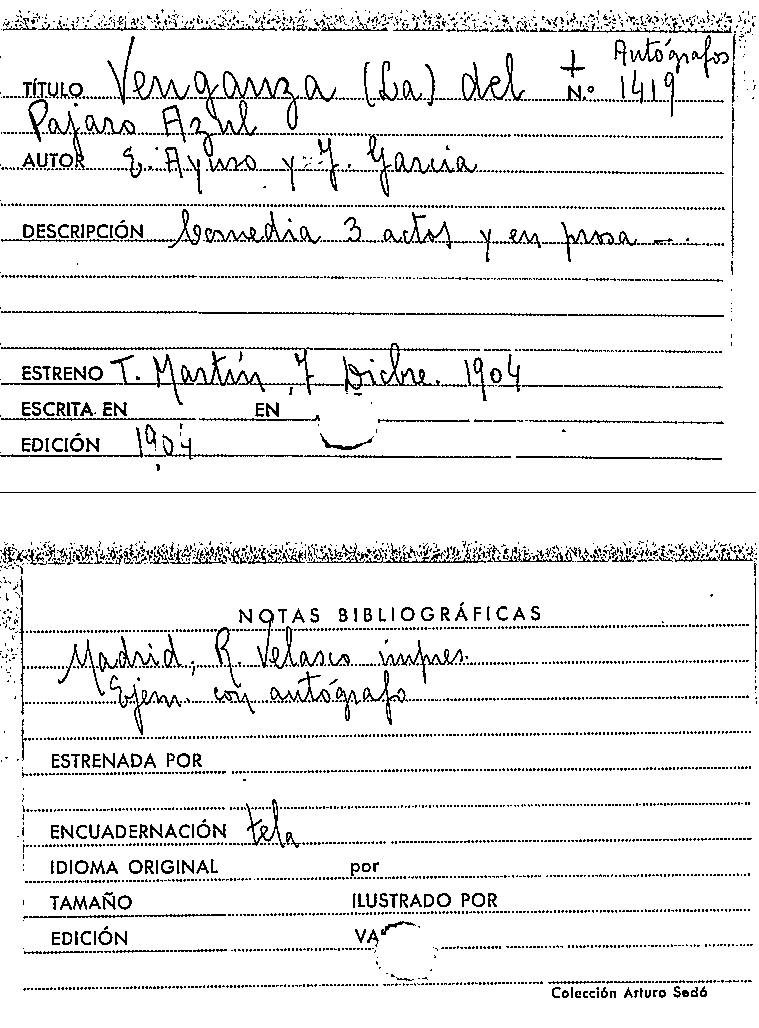 Autógrafos
TÍTULO Venganza (La) del + N.º 1419
Pajaro Azul
AUTOR E. Ayuso y J. Garcia
DESCRIPCIÓN Comedia 3 actos y en prosa -..
ESTRENO T. Martín, 7 Dicbre. 1904
ESCRITA EN EN
EDICIÓN 1904
NOTAS BIBLIOGRÁFICAS
Madrid, R. Velasco impres.
Ejem. con autógrafo
ESTRENADA POR
ENCUADERNACIÓN tela
IDIOMA ORIGINAL por
TAMAÑO ILUSTRADO POR
EDICIÓN VA
Colección Arturo Sedó